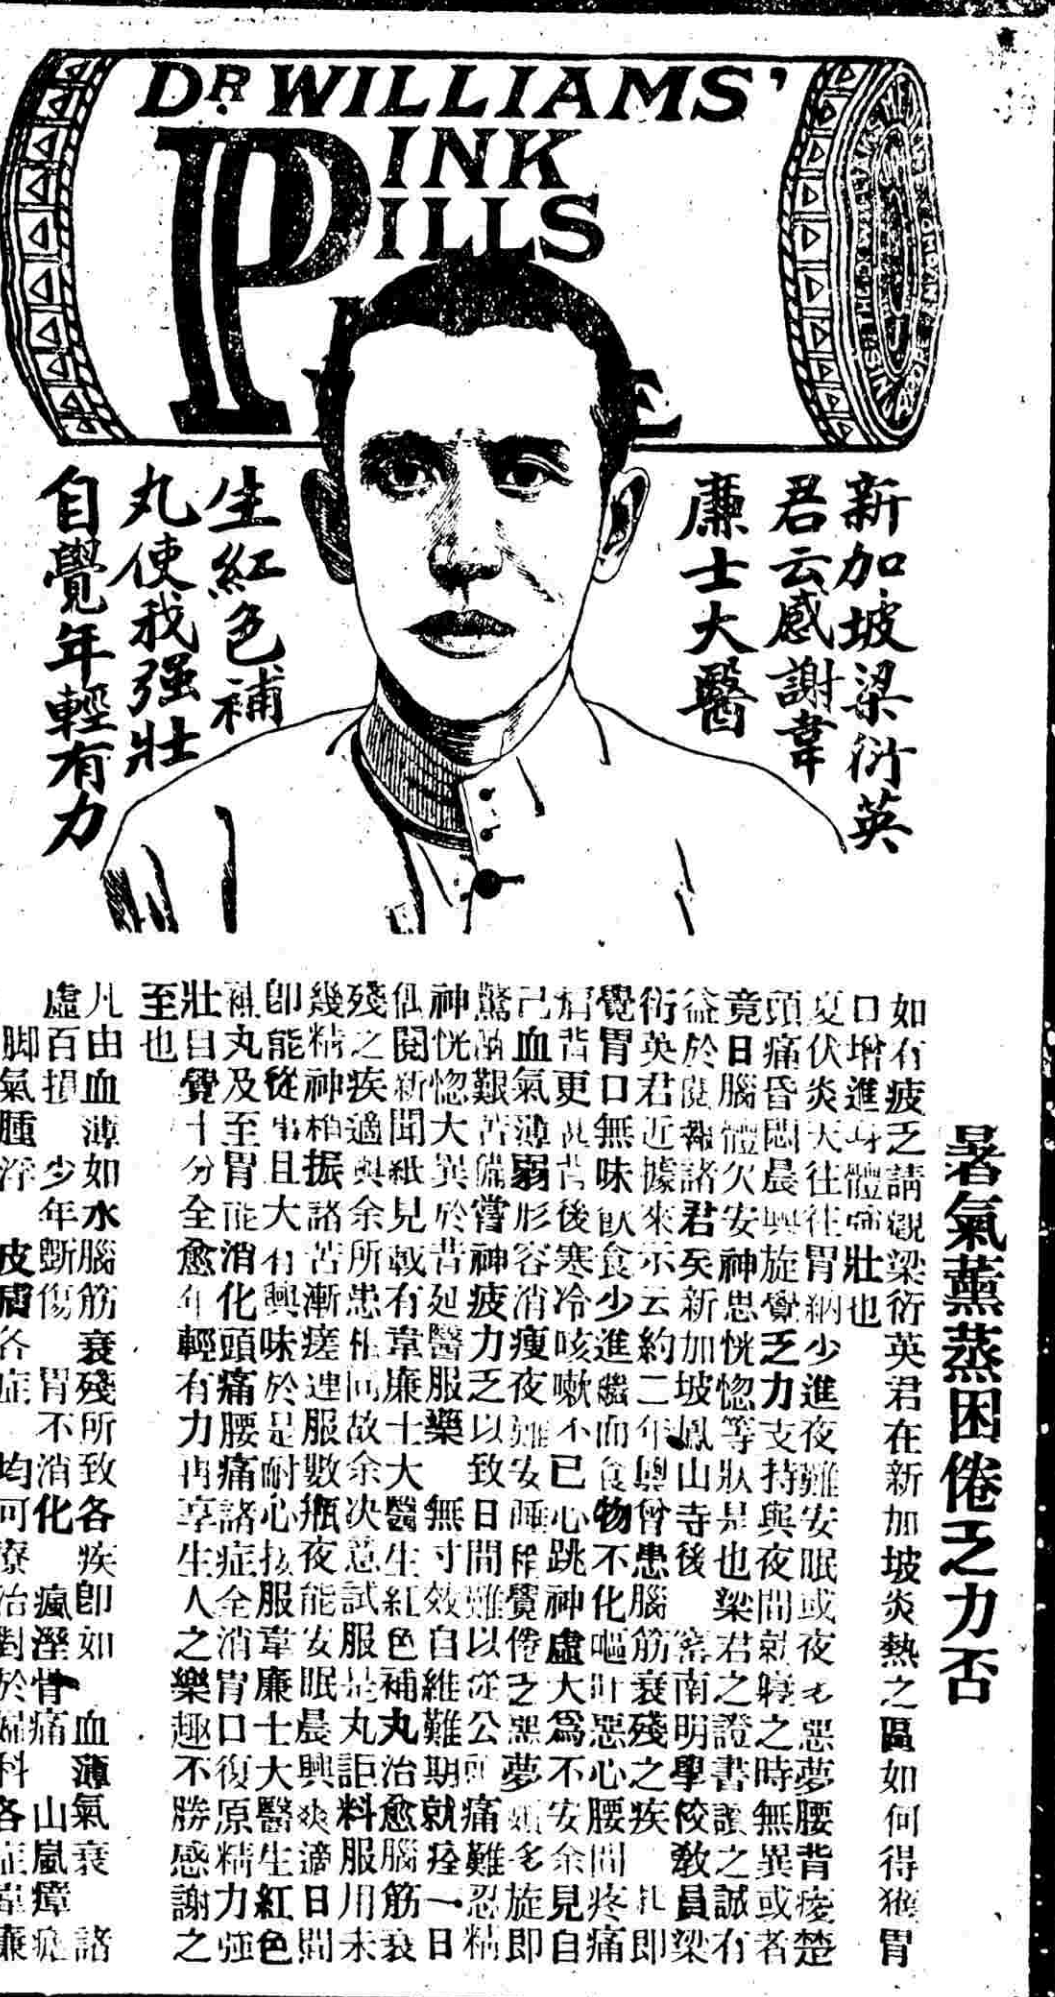 DR WILLIAMS'
PINK
PILLS
新加坡梁衍英
君云感謝韋
廉士大醫
生紅色補
丸使我强壯
自覺年輕有力
暑氣薰蒸困倦乏力否
如有疲乏請觀梁衍英君在新加坡炎熱之區如何得獲胃
口增進身體強壯也
夏伏炎天往往胃納少進夜難安眠或夜多惡夢腰背痠楚
頭痛昏悶晨興旋覺乏力支持與夜間就寢之時無異或者
竟日腦體欠安神思恍惚等狀是也梁君之證書讀之誠有
益於閱報諸君矣新加坡鳳山寺後 南明學校教員梁
衍英君近據來示云約二年與曾患腦筋衰殘之疾 即
覺胃口無味飲食少進繼而食物不化嘔吐惡心腰間疼痛
背更甚苦後寒冷咳嗽不已心跳神虛大爲不安余見自
己血氣薄弱形容消瘦夜難安睡稍覺倦乏惡夢 多旋即
驚醒艱苦備嘗神疲力乏以致日間難以從公 痛難忍精
神恍惚大異於昔延醫服藥 無寸效自維難期就痊一日
偶閱新聞紙見載有韋廉士大醫生紅色補丸治愈腦筋衰
殘之疾適與余所患相同故余決意試服是丸詎料服用未
幾精神稍振諸苦漸瘥連服數瓶夜能安眠晨興爽適日間
即能從事且大有興味於是耐心 服韋廉士大醫生紅色
補丸及至胃能消化頭痛腰痛諸症全消胃口復原精力強
壯自覺十分全愈年輕有力再享生人之樂趣不勝感謝之
至也
凡由血薄如水腦筋衰殘所致各疾即如 血薄氣衰 諸
虛百損 少年斲傷 胃不消化 瘋溼骨痛 山嵐瘴瘧
脚氣腫浮 皮膚各症 均可療治對於婦科各症韋廉